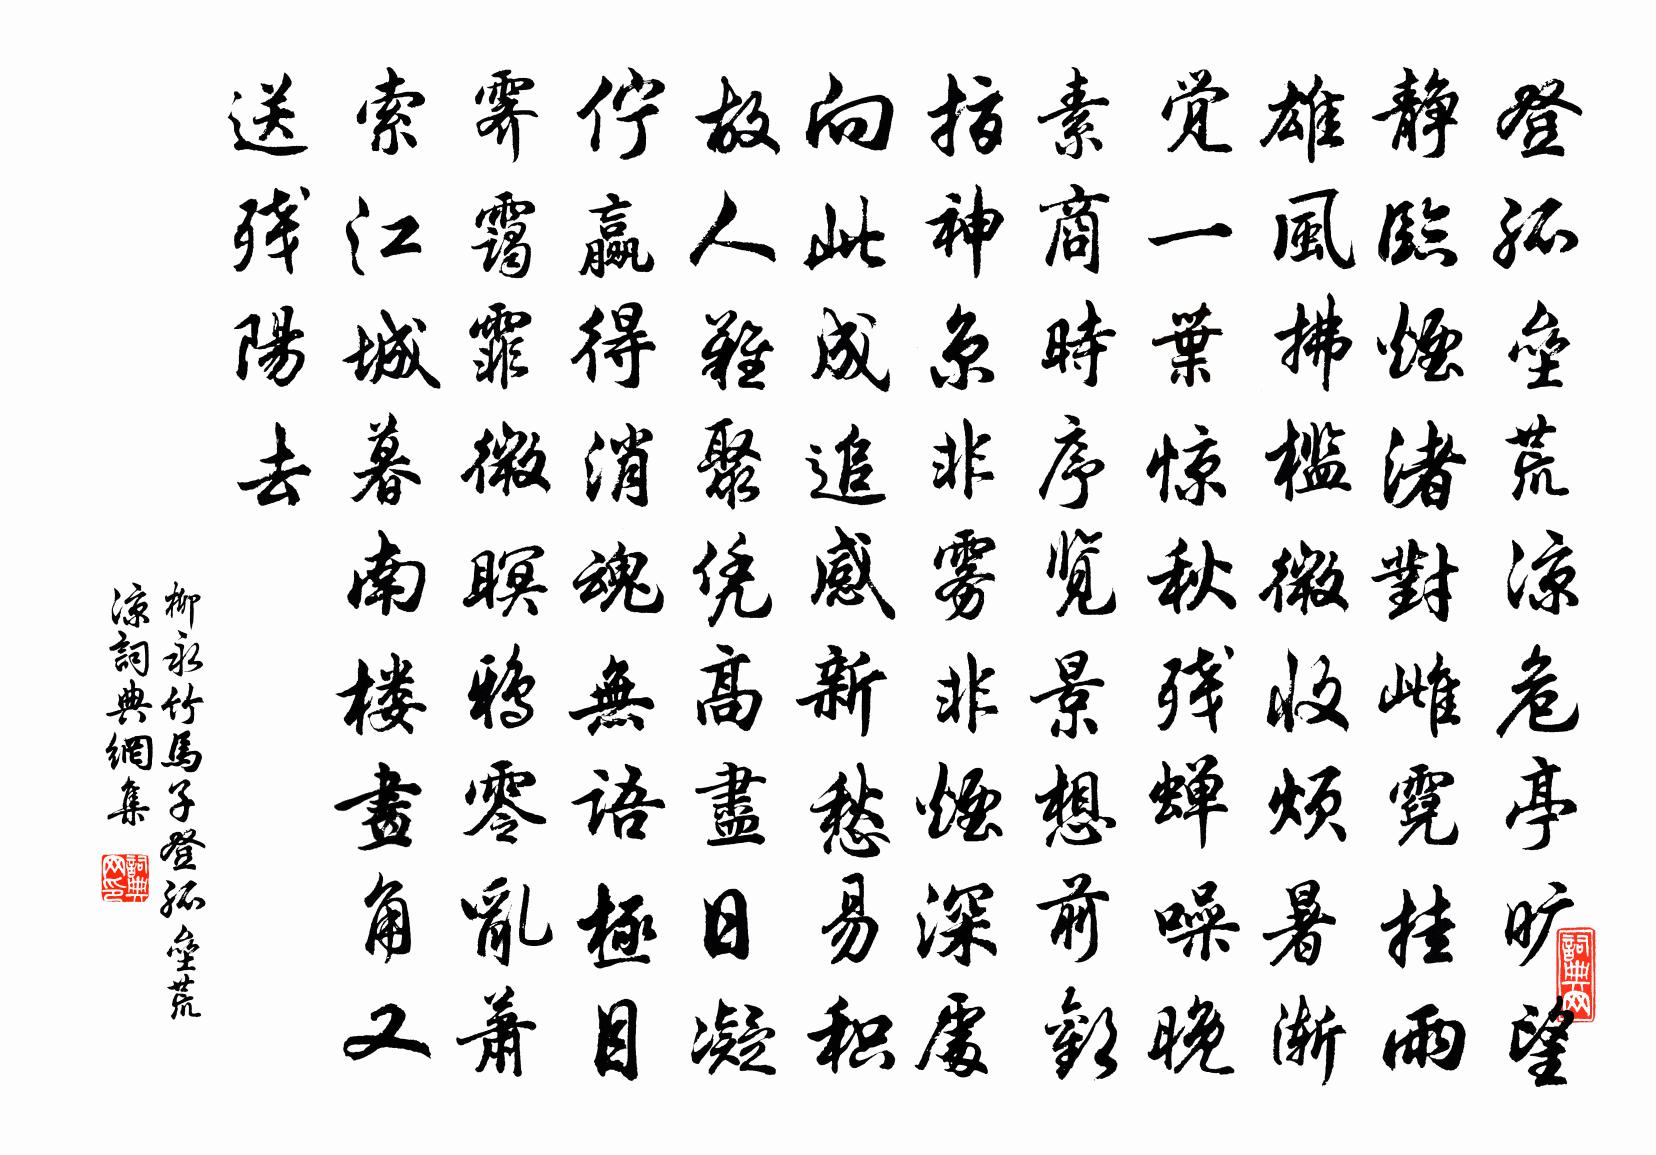 登孤垒荒涼危亭旷望
静臨煙渚對雌霓挂雨
雄風拂檻微收烦暑渐
觉一葉惊秋残蝉噪晚
素商時序览景想前歡
指神京非雾非煙深處
向此成追感新愁易积
故人難聚凭高盡日凝
佇赢得消魂無語極目
霁靄霏微瞑鴉零亂蕭
索江城暮南楼畫角又
送残陽去
柳永竹馬子登孤垒荒
涼詞典網集
詞典网
詞典网印